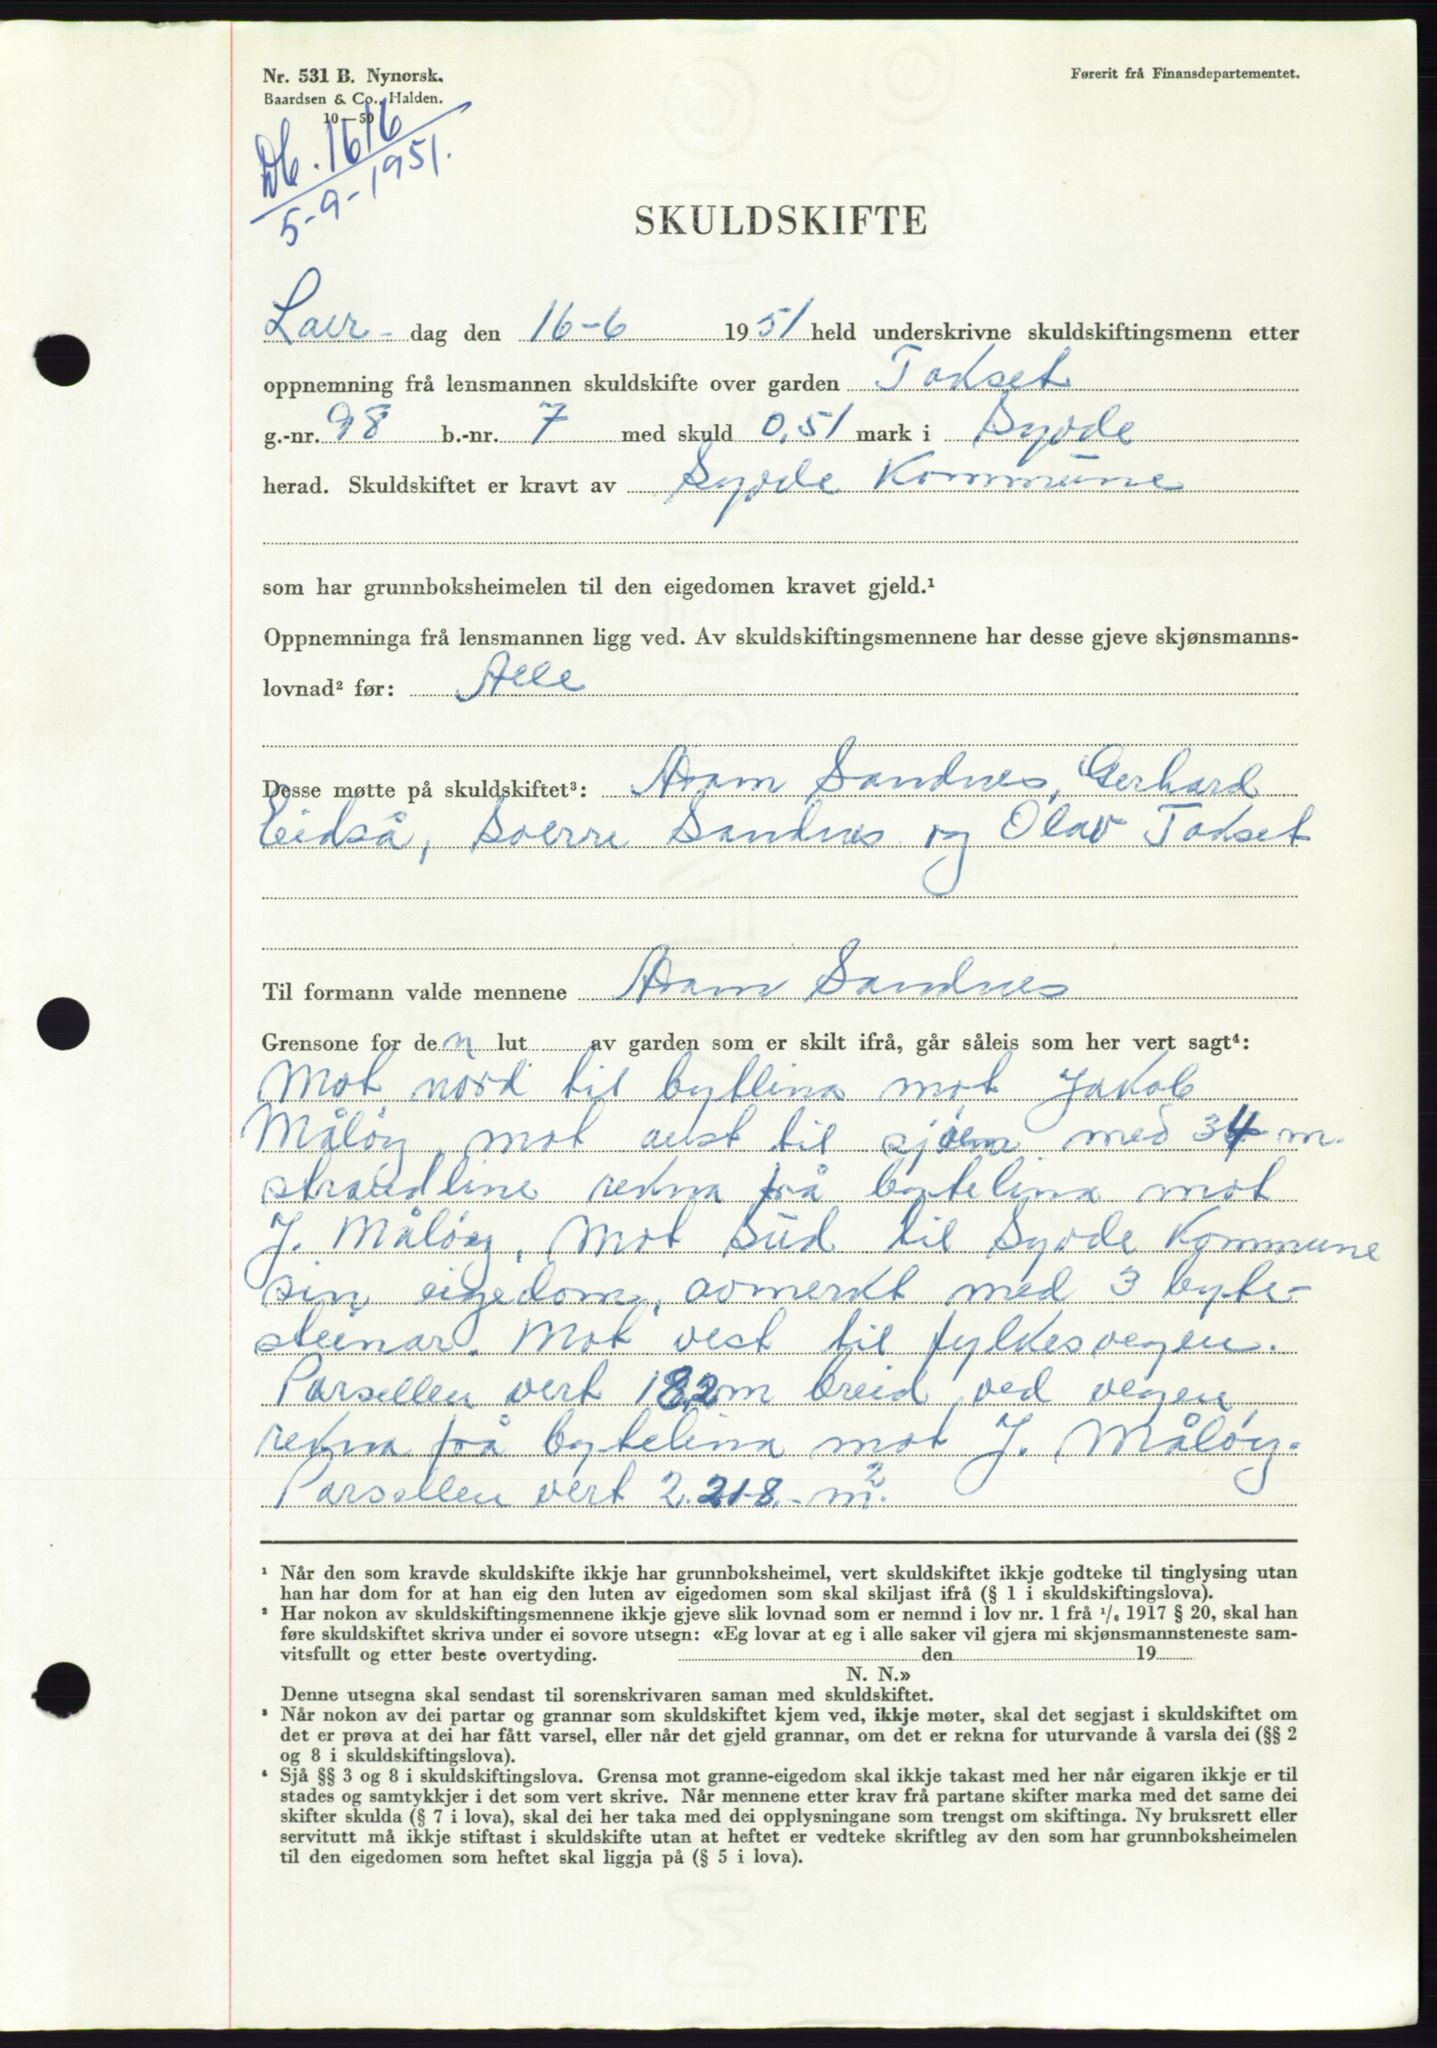 Nr. 531 B. Nynorsk.
Baardsen & Co., Halden.
10—50
Førerit frå Finansdepartementet.
Db. 1616
5-9-1951.
SKULDSKIFTE
Laur- dag den 16-6 1951 held underskrivne skuldskiftingsmenn etter
oppnemning frå lensmannen skuldskifte over garden Tokset
g.-nr. 98 b.-nr. 7 med skuld 0,51 mark i Syvde
herad. Skuldskiftet er kravt av Syvde Kommune
som har grunnboksheimelen til den eigedomen kravet gjeld.¹
Oppnemninga frå lensmannen ligg ved. Av skuldskiftingsmennene har desse gjeve skjønsmanns-
lovnad² før: Alle
Desse møtte på skuldskiftet³: Aram Sandnes, Gerhard
Eidså, Sverre Sandnes og Olav Tokset
Til formann valde mennene Aram Sandnes
Grensone for den lut av garden som er skilt ifrå, går såleis som her vert sagt⁴:
Mot nord til bytlina mot Jakob
Måløy, mot aust til sjøen med 34 m.
strandline rekna frå bytelina mot
J. Måløy, Mot Sud til Syvde Kommune
sin eigedom, avmerkt med 3 byte-
steinar. Mot vest til fylkesvegen.
Parsellen vert 182 m breid ved vegen,
rekna frå bytelina mot J. Måløy.
Parsellen vert 2.218.- m².
¹ Når den som kravde skuldskifte ikkje har grunnboksheimel, vert skuldskiftet ikkje godteke til tinglysing utan
han har dom for at han eig den luten av eigedomen som skal skiljast ifrå (§ 1 i skuldskiftingslova).
² Har nokon av skuldskiftingsmennene ikkje gjeve slik lovnad som er nemnd i lov nr. 1 frå ¹/₆ 1917 § 20, skal han
føre skuldskiftet skriva under ei sovore utsegn: «Eg lovar at eg i alle saker vil gjera mi skjønsmannsteneste sam-
vitsfullt og etter beste overtyding. den 19
N. N.»
Denne utsegna skal sendast til sorenskrivaren saman med skuldskiftet.
³ Når nokon av dei partar og grannar som skuldskiftet kjem ved, ikkje møter, skal det segjast i skuldskiftet om
det er prøva at dei har fått varsel, eller når det gjeld grannar, om det er rekna for uturvande å varsla dei (§§ 2
og 8 i skuldskiftingslova).
⁴ Sjå §§ 3 og 8 i skuldskiftingslova. Grensa mot granne-eigedom skal ikkje takast med her når eigaren ikkje er til
stades og samtykkjer i det som vert skrive. Når mennene etter krav frå partane skifter marka med det same dei
skifter skulda (§ 7 i lova), skal dei her taka med dei opplysningane som trengst om skiftinga. Ny bruksrett eller
servitutt må ikkje stiftast i skuldskifte utan at heftet er vedteke skriftleg av den som har grunnboksheimelen
til den eigedomen som heftet skal liggja på (§ 5 i lova).